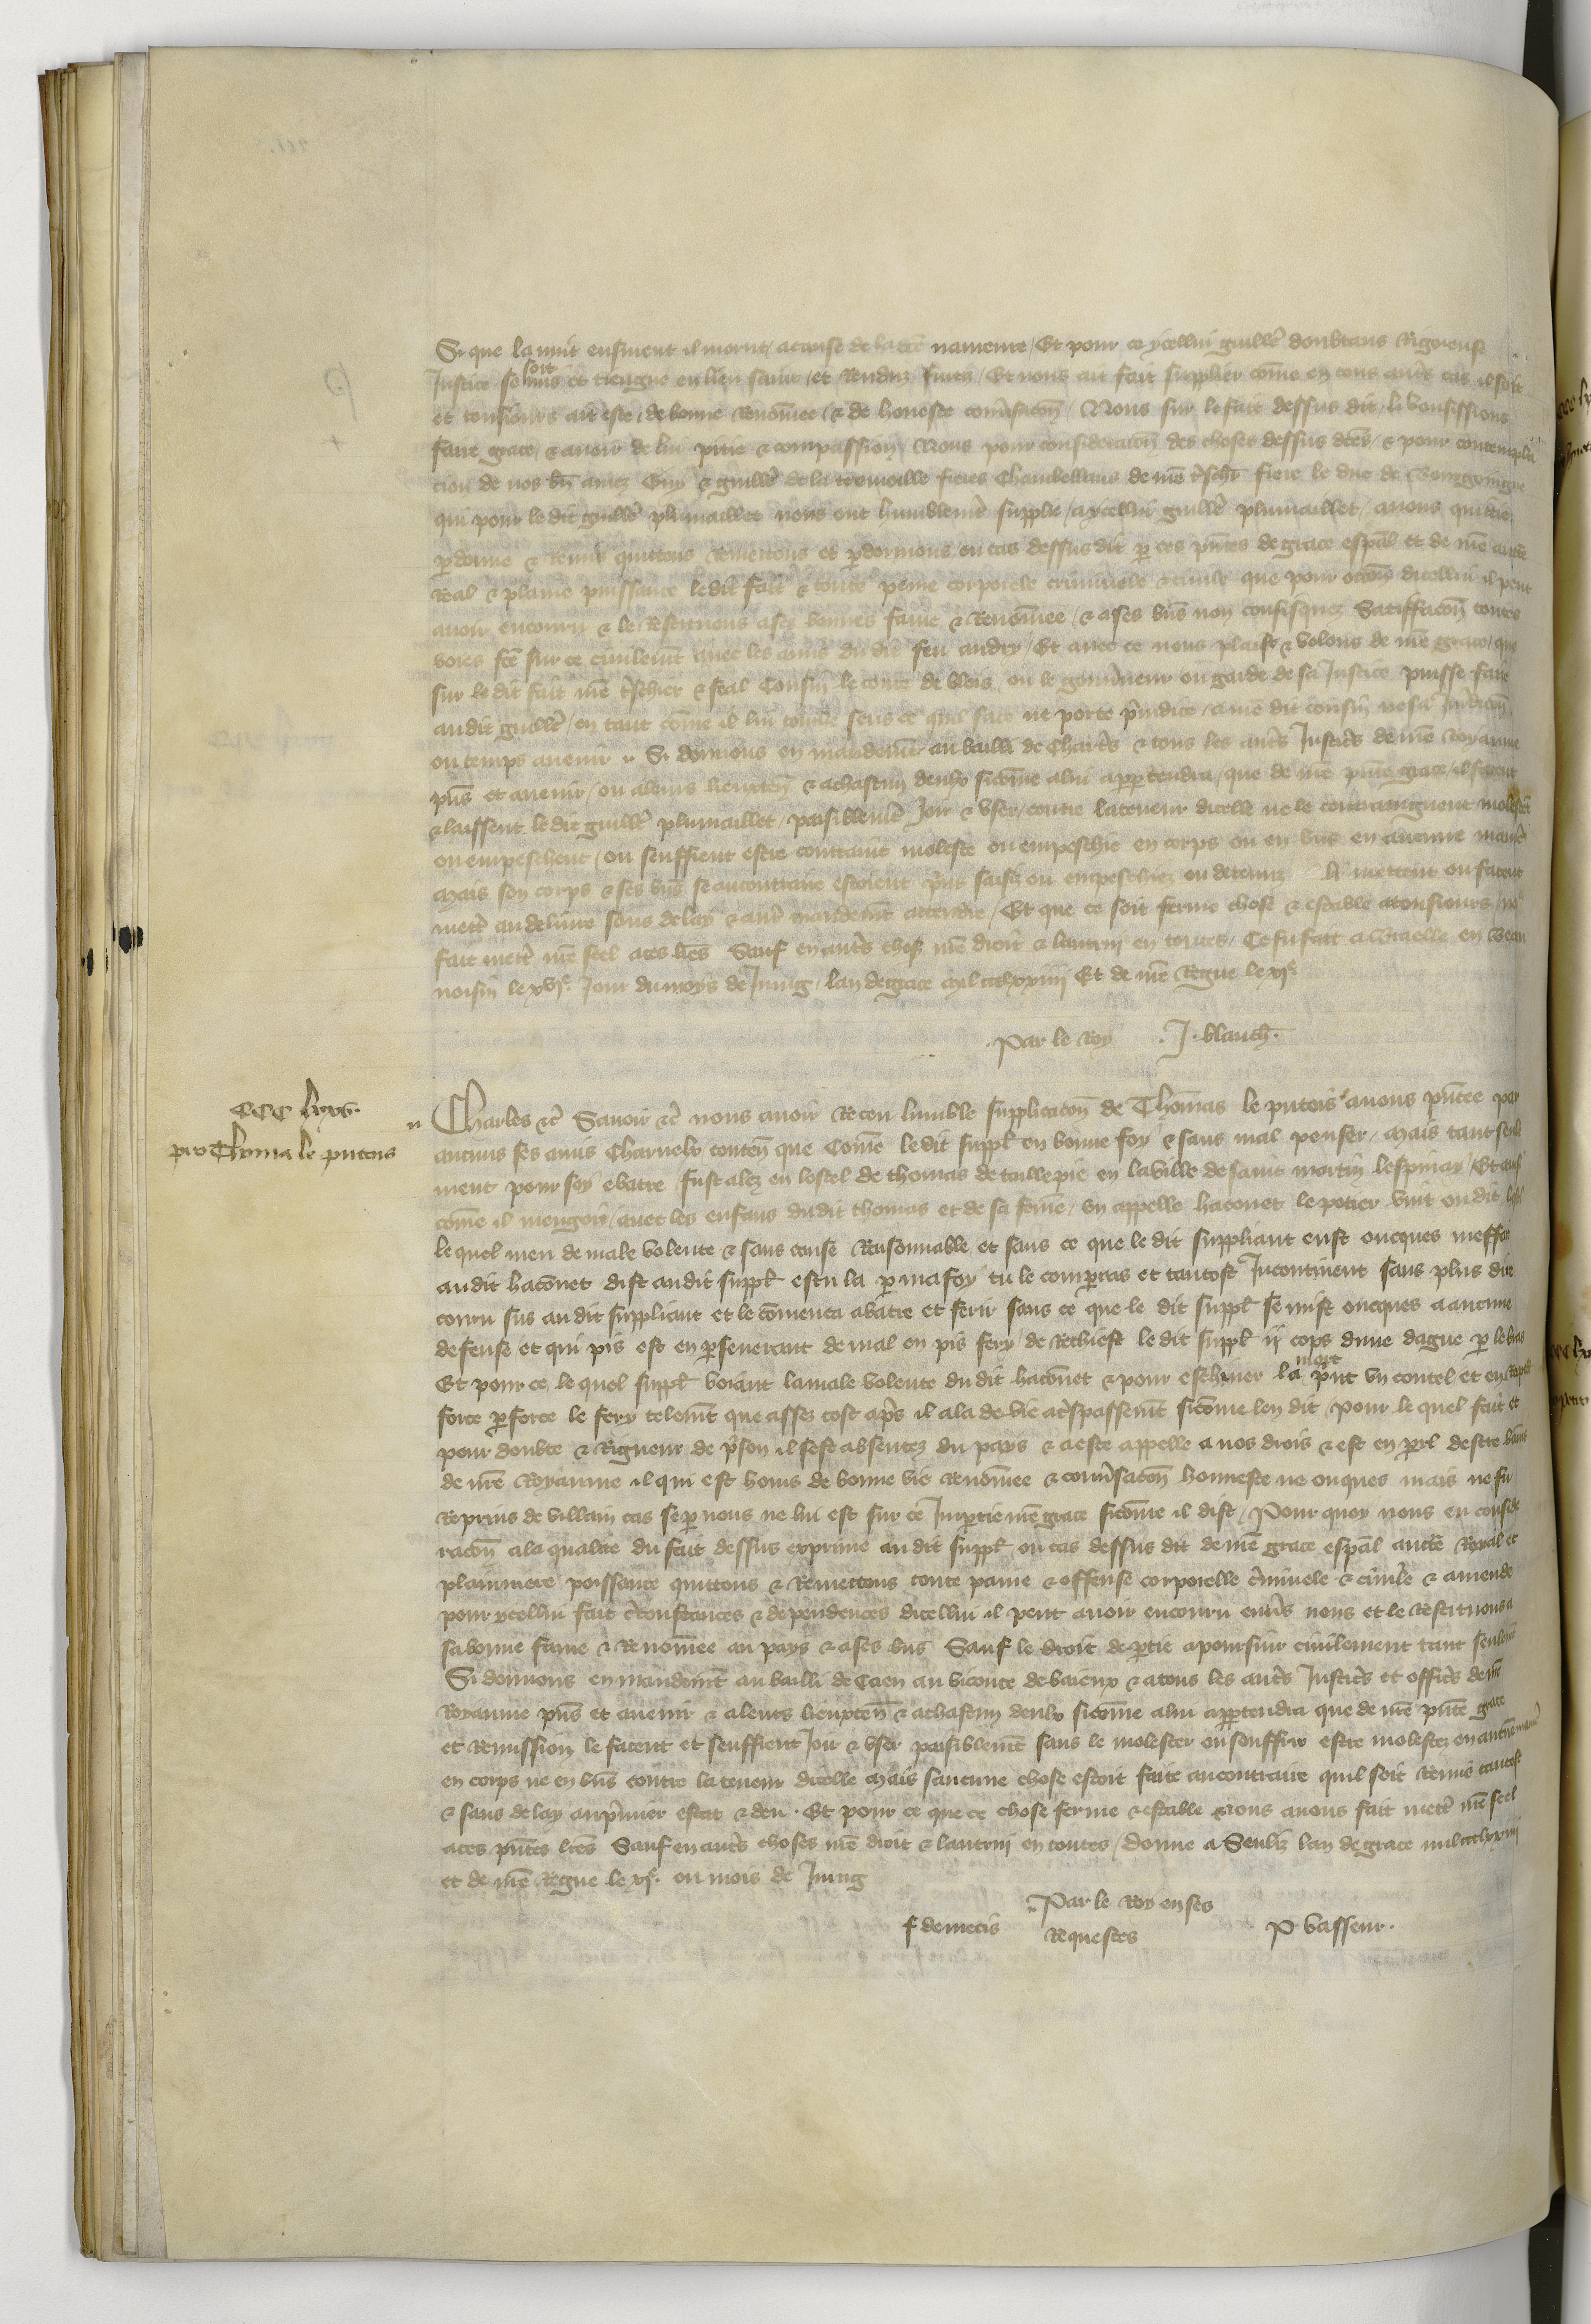 Si que la nuit ensivent il morut a cause de ladicte navreure / Et pour ce ycellui guillẽ doubtans Rigueuse
Justice se soit mis et tiengne en lieu saint et Nous ait fait supplier cõme en tous autres cas il soit
et tousiours ait este de bonne Renõmee & de honeste conv̾sacõn / Nous sur le fait dessus dit li voulsissions
faire grace & avoir de lui pitie & compassion / Nous pour consideracõn des choses dessus dc̃es & pour contempla
cion de nos bñ amez Guy & guillẽ de la tremoille freres Chambellans de nr̃e treschr̃ frere le duc de Bourgoingne
qui pour le dit guillẽ plumaillet nous ont humblemẽt supplie a ycellui guillẽ plumaillet avons quittie
p̱donne & Remis quittons Remettons et p̱donnons ou cas dessus dit p̱ ces pñtes de grace esp̃al et de nr̃e aucte
Real & plaine puissance le dit fait & toute peine corporele criminele & civile que pour occõn dicellui il peut
avoir encouru & le Restituons a ses bonnes fame & Renõmee & a ses bñs non confisquez Satiffacõn toutes
voies fc̃e sur ce civilemẽt avec les amis du dit feu andry / Et avec ce nous plaist & volons de nr̃e grace que
sur le dit fait nr̃e tr̃schier & feal Cousin le conte de blois ou le gouv̾neur ou garde de sa Justice puisse faire
au dit guillẽ en tant cõme il lui touche sens ce quil face ne porte p̃iudice a nr̃e dit cousin ne sa Jur̃dicõn
ou temps avenir Si donnons en mandemẽt au bailli de Chart̾s & tous les aut̾s Justic̾s de nr̃e Royaume
pñs et avenir ou a leurs lieuxteñ & a chascun deulx sicõme a lui app̱tendra que de nr̃e pñte grace il facent
& laissent le dit guillẽ plumaillet paisiblemẽt Joir & user contre la teneur dicelle ne le contraingnent molestẽt
ou empeschent ou seuffrent estre contraint moleste ou empeschie en corps ou en bñs en aucune manier̃
Mais son corps & ses bñs se au contraire estoient p̃ns saisiz ou empeschiez ou detenuz li mettent ou facent
mett̾ au delivre sens delay & aut̾ mandemẽt attendre / Et que ce soit ferme chose & estable a tousiours no9
fait mett̾ nr̃e scel a ces lr̃es Sauf en aut̾s chos̾ nr̃e droit & lautruy en toutes / Ce fu fait a Vraelle en Beau
voisin le xvjᵉ Jour du moys de Juing lan de grace mil ccclxxiiij Et de nr̃e Regne le xjᵉ
Par le Roy J. blanch̃.
CCC lxxv.
pro Thoma le putois
Charles &c̃ Savoir &c̃ nous avoir Receu lumble supplicacõn de Thõmas le putois a nous pñtee par
aucuns ses amis Charnelx conteñ que Cõme le dit suppl̃ en bonne foy & sans mal penser / mais tant seule
ment pour soy ebatre fust alez en lostel de thomas de taillepie en la ville de saint martin lespinay / Et aussi
cõme il mengoit avec les enfans dudit thomas et de sa fem̃e un appelle haconet le potier vint ou dit hostel
le quel meu de male volente & sans cause Raisonnable et sans ce que le dit suppliant eust oncques meffait
au dit haconet dist au dit suppl̃ es tu la p̱ ma foy tu le comp̱ras et tantost Incontinent sans plus dire
couru sus au dit suppliant et le cõmenca a batre et ferir sans ce que le dit suppl̃ se mist oncques a aucune
defense et qui pis est en p̱severant de mal en pis fery de Rechief le dit suppl̃ ij cops dune dague p̱ le bras
Et pour ce le quel suppl̃ voiant la male volente du dit haconet & pour eschiver la mort p̾nt un coutel et en Rapell̃
force p̱ force le fery telemẽt que assez tost ap̃s il ala de vie a tr̾spassemẽt sicõme len dit / pour le quel fait et
pour doubte & Rigueur de p̾son il sest absentez du pays & a este appelle a nos drois & est en p̱il destre banni
de nr̃e Royaume il qui est homs de bonne vie Renõmee & conv̾sacõn honneste ne onques mais ne fu
Reprins de villain cas se p̱ nous ne lui est sur ce Imp̱tie nr̃e grace sicõme il dist / Pour quoy nous eu conside
racõn a la qualite du fait dessus exprime au dit suppl̃ ou cas dessus dit de nr̃e grace esp̃al aucte Royal et
plainniere poissance quittons & Remettons toute paine & offense corporelle c̾iminele & civile & amende
pour ycellui fait c̾constances & dependences dicellui il peut avoir encouru env̾s nous et le Restituons a
sa bonne fame & Renõmee au pays & a ses bñs Sauf le droit de p̱tie a poursuir civilement tant seulemt
Si donnons en mandemẽt au bailli de Caen au viconte de baieux & a tous les aut̾s Justic̾s et offic̾s de nr̃e
Royaume pñs et avenir & a leurs lieuxteñ & a chascun deulx sicõme a lui app̱tendra que de nr̃e pñte grace
et Remission le facent et seuffrent Joir & user paisiblemẽt sans le molester ou souffrir estre molestez en aucune manier̃
en corps ne en bñs contre la teneur dicelle Mais saucune chose estoit faite au contraire quil soit Remis tantost
& sans delay au p̾mier estat & deu. Et pour ce que ce chose ferme & estable Nous avons fait mett̾ nr̃e seel
a ces pñtes lr̃es Sauf en aut̾s choses nr̃e droit & lautruy en toutes / donne a Senliz lan de grace mil ccclxxiiij
et de nr̃e Regne le xjᵉ ou mois de Juing
Par le Roy en ses
Requestes
f de metis P vasseur.